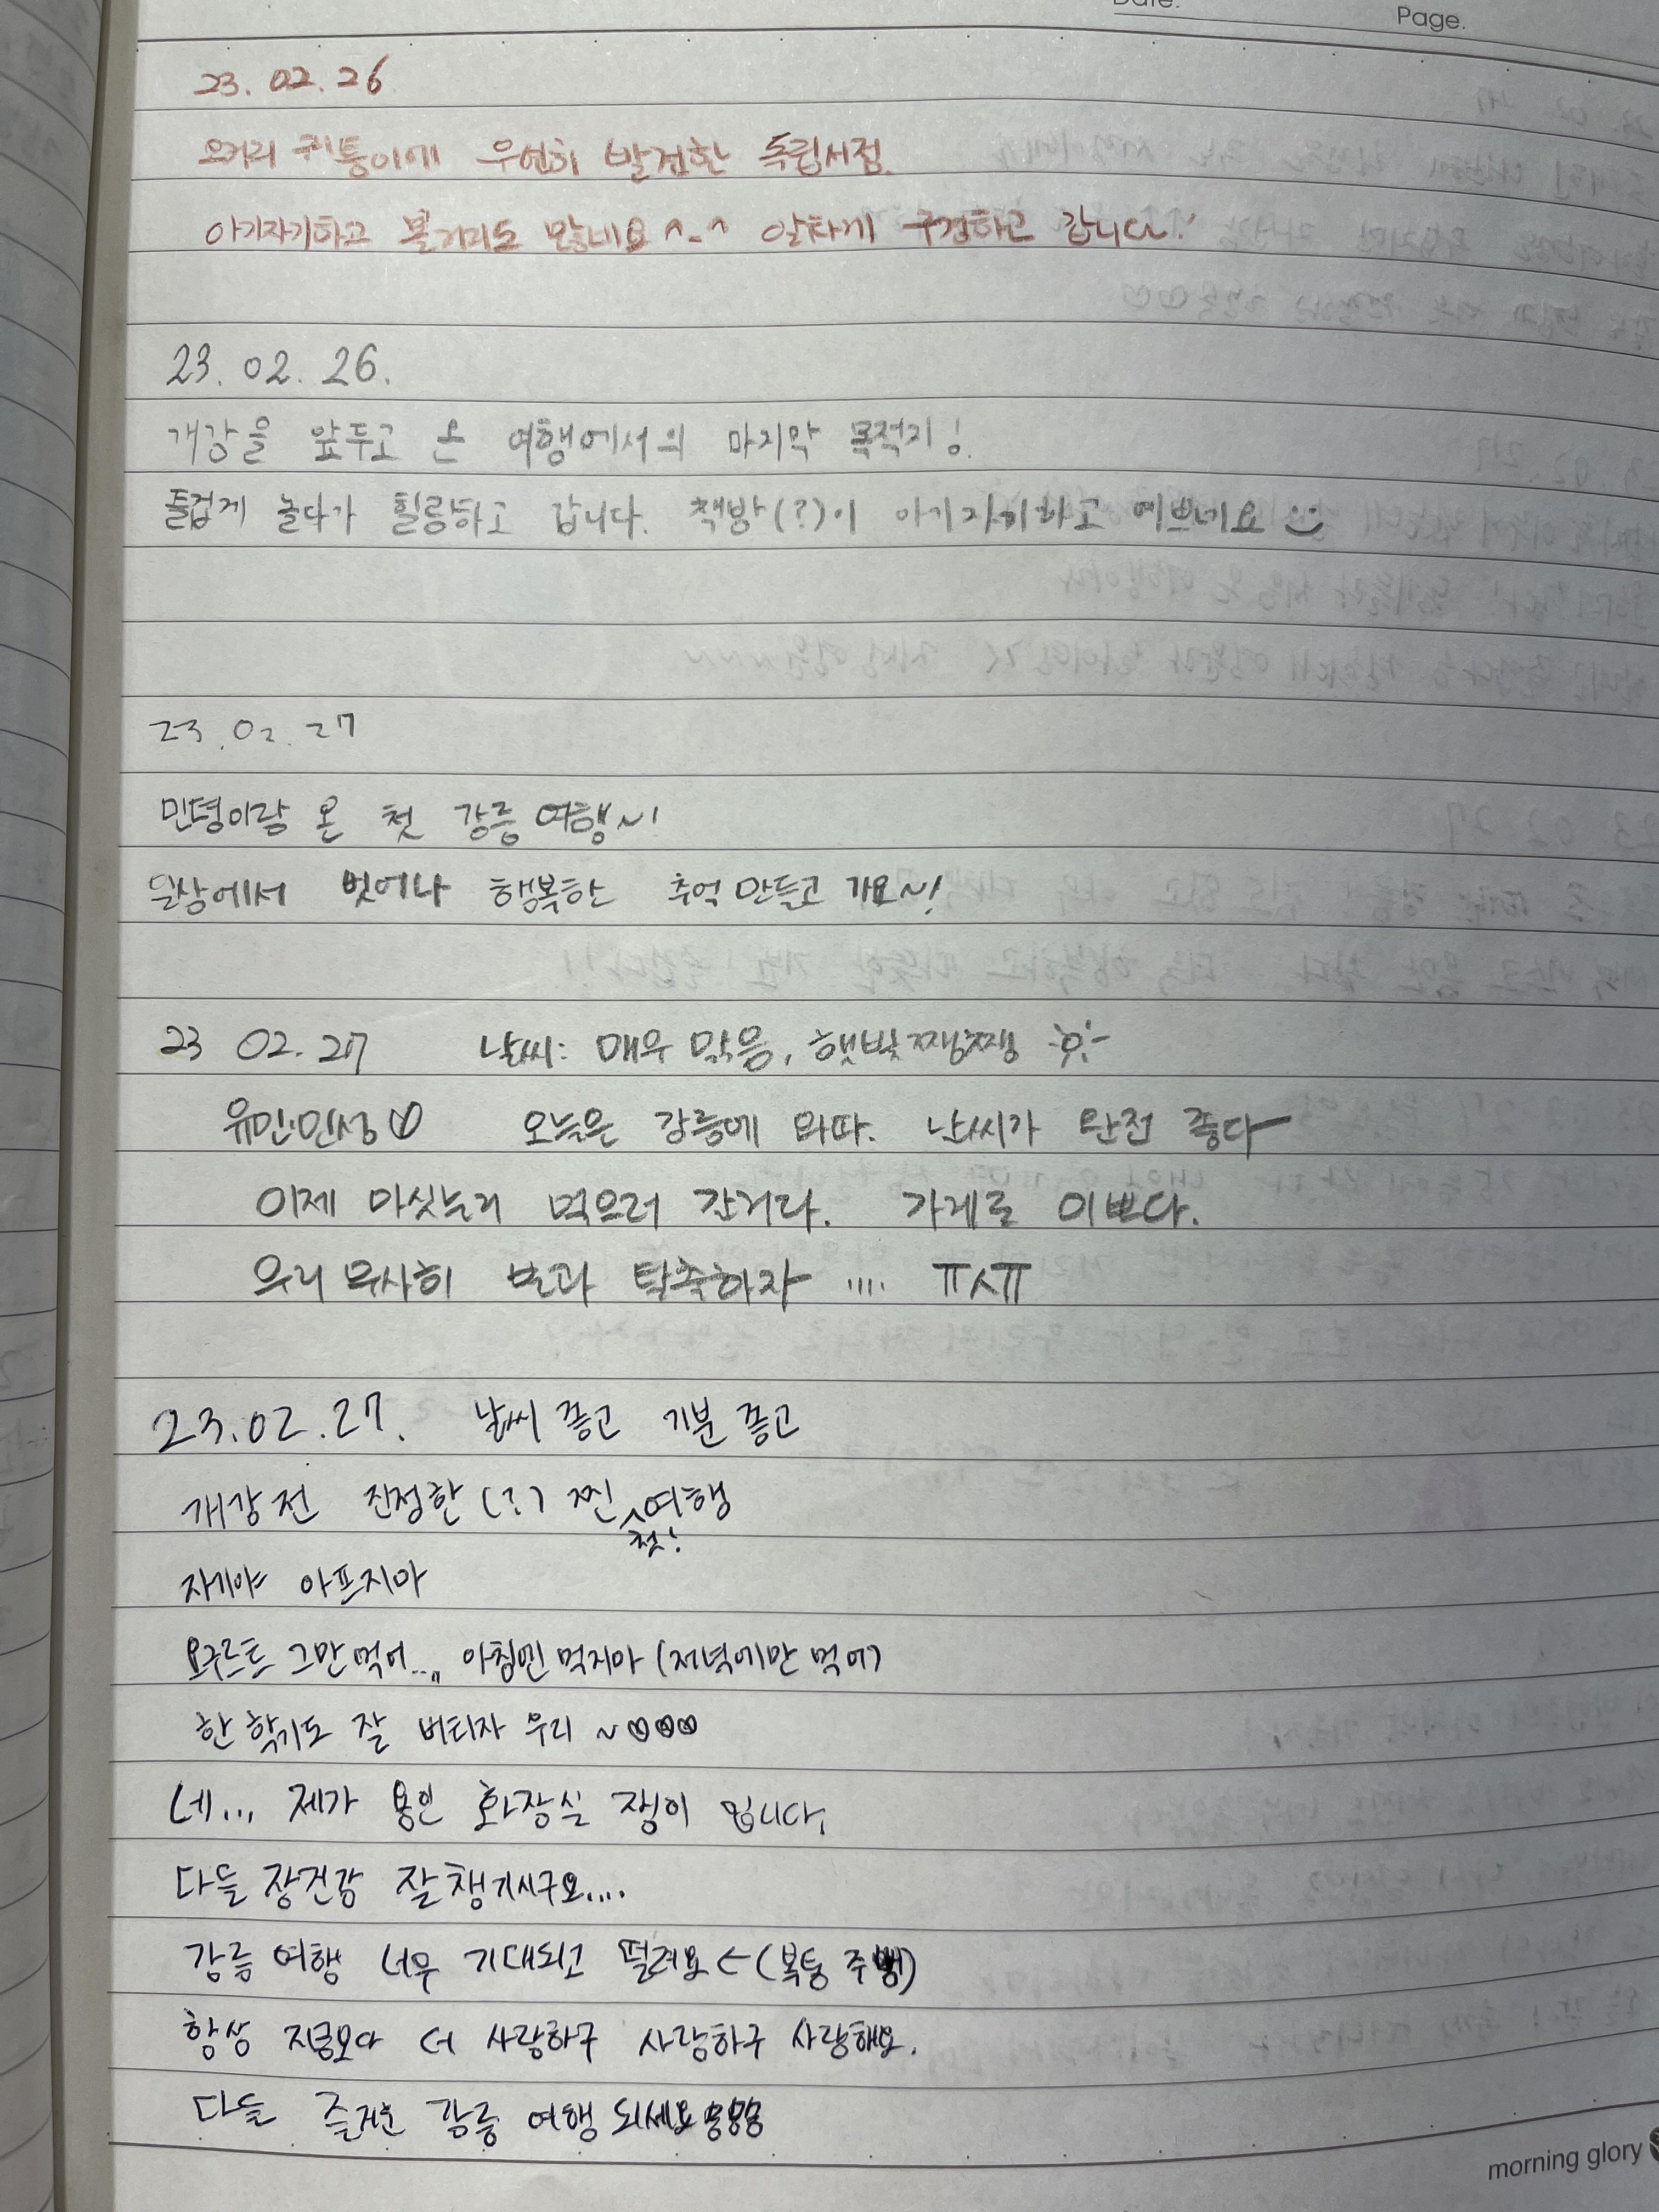 Date.
Page.
23. 02. 26
오거리 귀퉁이에 우연히 발견한 독립서점.
아기자기하고 볼거리도 많네요 ^-^ 알차게 구경하고 갑니다!
23. 02. 26.
개강을 앞두고 온 여행에서의 마지막 목적지!
즐겁게 놀다가 힐링하고 갑니다. 책방(?)이 아기자기하고 예쁘네요 :)
23. 02. 27
민뎡이랑 온 첫 강릉 여행~!
일상에서 벗어나 행복한 추억 만들고 가요~!
23 02. 27 날씨: 매우 맑음, 햇빛 쨍쨍
유민·민성♡ 오늘은 강릉에 와따. 날씨가 완전 좋다
이제 마싯는거 먹으러 간거다. 가게로 이쁘다.
우리 무사히 본과 탈출하자 .... ㅠㅅㅠ
23.02.27. 날씨 좋고 기분 좋고
개강 전 진정한(?) 찐 첫! 여행
자기야 아프지마
요구르트 그만 먹어... 아침엔 먹지마 (저녁에만 먹어)
한 학기도 잘 버티자 우리 ~♡♡♡
네... 제가 용인 화장실 쟁이 입니다.
다들 장건강 잘 챙기시구요....
강릉 여행 너무 기대되고 떨려요 <- (복통 주범)
항상 지금보다 더 사랑하구 사랑하구 사랑해요.
다들 즐거운 강릉 여행 되세요
morning glory